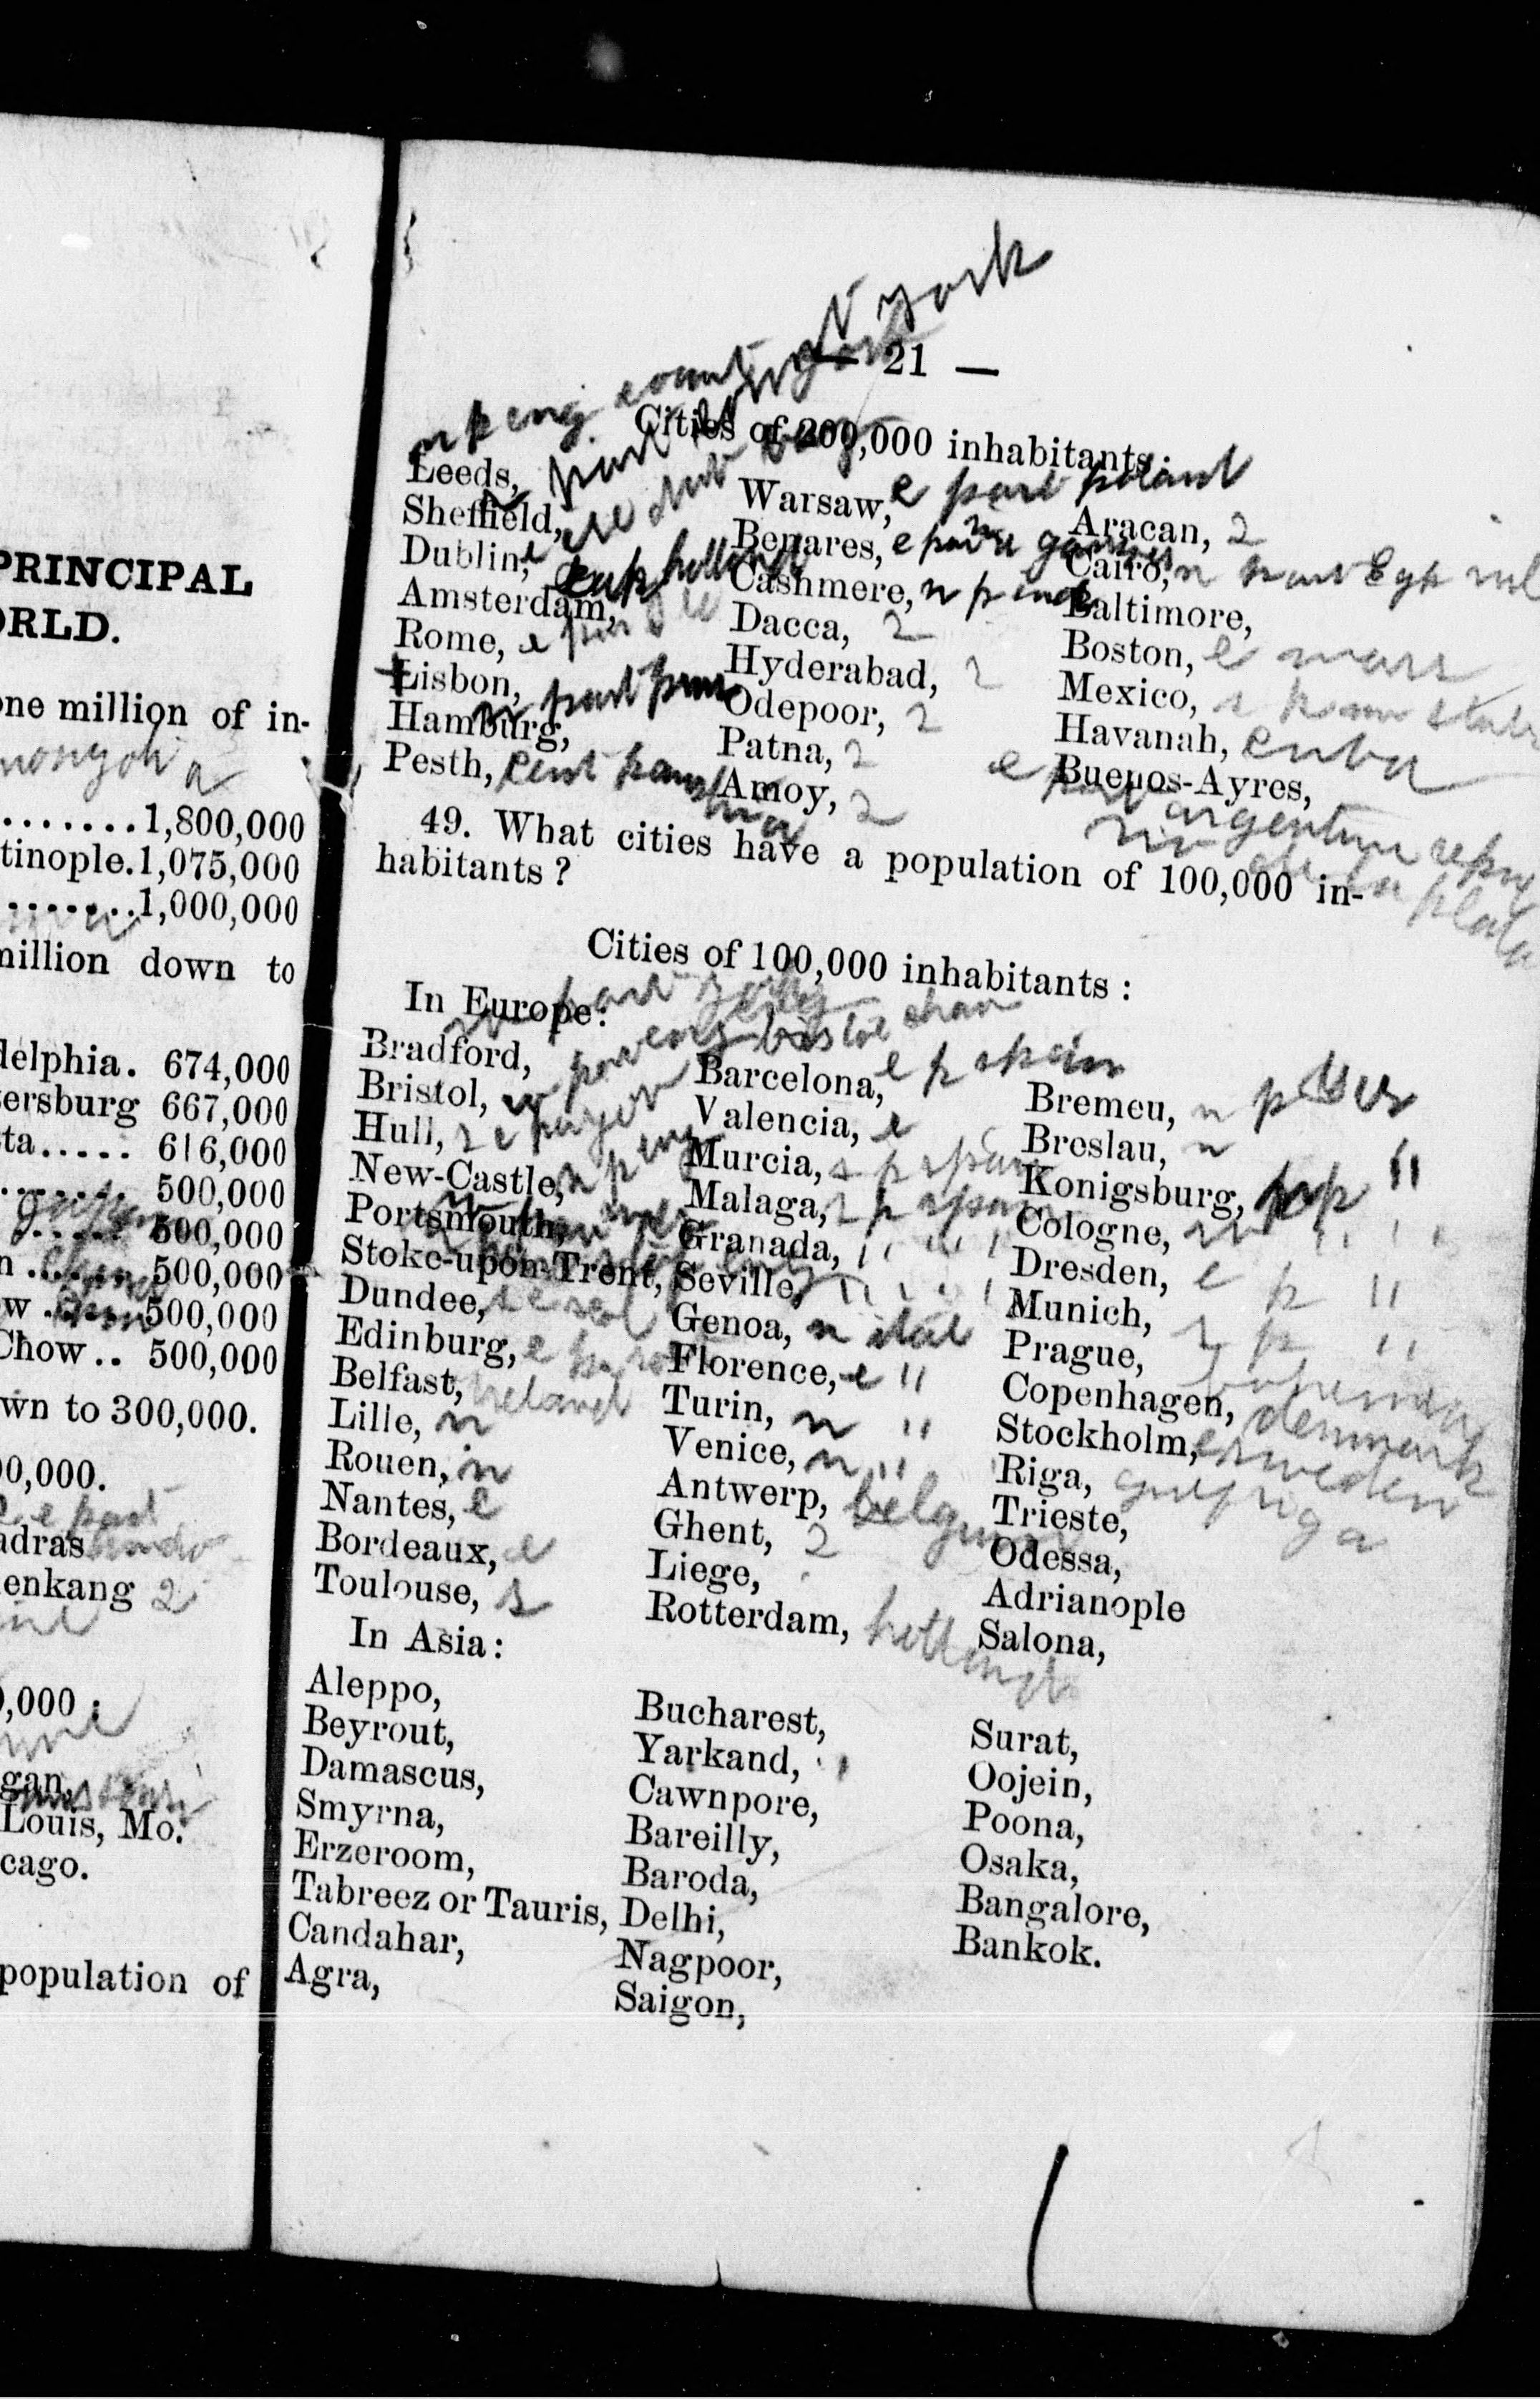 PRINCIPAL
ORLD.
one million of in-
.......1,800,000
tinople.1,075,000
........1,000,000
million down to
delphia. 674,000
ersburg 667,000
ta..... 616,000
500,000
500,000
n ...... 500,000
ow .. 500,000
Chow.. 500,000
wn to 300,000.
00,000.
e part
adras
enkang 2
0,000 :
gan,
Louis, Mo.
cago.
population of
N york
— 21 —
n p eng
Cities of 200,000 inhabitants:
Leeds,
Sheffield,
Dublin, e
Amsterdam, holland
Rome,
Lisbon,
Hamburg, n part
Pesth, cent
Warsaw, e part poland
Benares, e part
Cashmere, n p
Dacca, 2
Hyderabad, 2
Odepoor, 2
Patna, 2
Amoy, 2
Aracan, 2
Cairo, n part
Baltimore,
Boston, e mass
Mexico,
Havanah, cuba
Buenos-Ayres,
e part argentine repu
la plata
49. What cities have a population of 100,000 in-
habitants?
Cities of 100,000 inhabitants:
In Europe:
Bradford,
Bristol,
Hull,
New-Castle, n p eng
Portsmouth,
Stoke-upon-Trent,
Dundee,
Edinburg, e
Belfast, Ireland
Lille, n
Rouen, n
Nantes, e
Bordeaux, e
Toulouse, s
Barcelona, e p spain
Valencia, e
Murcia, s p spain
Malaga, s p spain
Granada, " " "
Seville,
Genoa, n ital
Florence, e "
Turin, n "
Venice, n "
Antwerp, belgium
Ghent, 2
Liege,
Rotterdam, holland
Bremeu, n p
Breslau, n "
Konigsburg,
Cologne,
Dresden, e p "
Munich, s p "
Prague,
Copenhagen, denmark
Stockholm, e sweden
Riga, gulf riga
Trieste,
Odessa,
Adrianople
Salona,
In Asia:
Aleppo,
Beyrout,
Damascus,
Smyrna,
Erzeroom,
Tabreez or Tauris,
Candahar,
Agra,
Bucharest,
Yarkand,
Cawnpore,
Bareilly,
Baroda,
Delhi,
Nagpoor,
Saigon,
Surat,
Oojein,
Poona,
Osaka,
Bangalore,
Bankok.